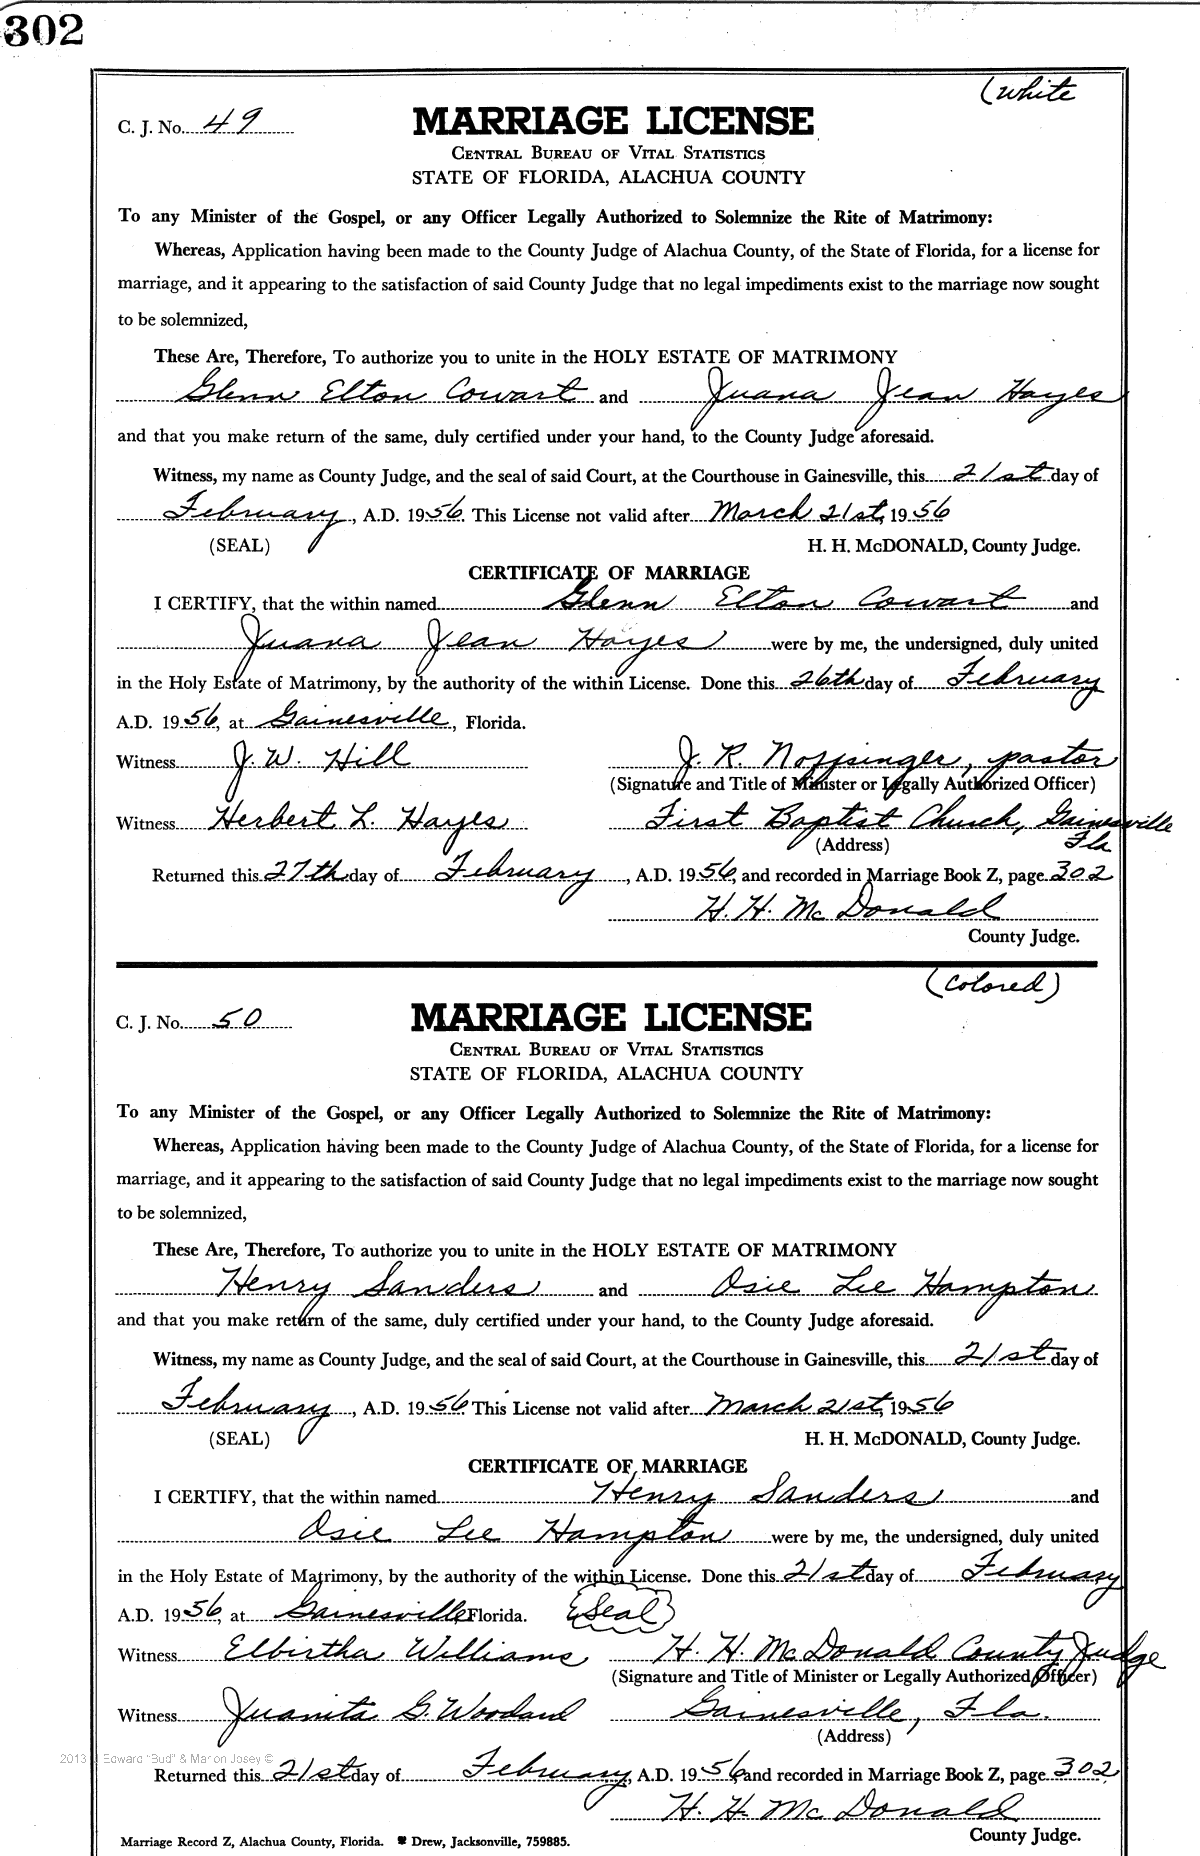 302
(white
C. J. No. 49
MARRIAGE LICENSE
CENTRAL BUREAU OF VITAL STATISTICS
STATE OF FLORIDA, ALACHUA COUNTY
To any Minister of the Gospel, or any Officer Legally Authorized to Solemnize the Rite of Matrimony:
Whereas, Application having been made to the County Judge of Alachua County, of the State of Florida, for a license for
marriage, and it appearing to the satisfaction of said County Judge that no legal impediments exist to the marriage now sought
to be solemnized,
These Are, Therefore, To authorize you to unite in the HOLY ESTATE OF MATRIMONY
Glenn Elton Cowart and Juana Jean Hayes
and that you make return of the same, duly certified under your hand, to the County Judge aforesaid.
Witness, my name as County Judge, and the seal of said Court, at the Courthouse in Gainesville, this 21st day of
February, A.D. 1956. This License not valid after March 21st, 1956
(SEAL) H. H. McDONALD, County Judge.
CERTIFICATE OF MARRIAGE
I CERTIFY, that the within named Glenn Elton Cowart and
Juana Jean Hayes were by me, the undersigned, duly united
in the Holy Estate of Matrimony, by the authority of the within License. Done this 26th day of February
A.D. 1956, at Gainesville, Florida.
Witness J. W. Hill J. R. Noffsinger, pastor
(Signature and Title of Minister or Legally Authorized Officer)
Witness Herbert L. Hayes First Baptist Church, Gainesville
(Address) Fla
Returned this 27th day of February, A.D. 1956, and recorded in Marriage Book Z, page 302
H. H. McDonald
County Judge.
(colored)
C. J. No. 50
MARRIAGE LICENSE
CENTRAL BUREAU OF VITAL STATISTICS
STATE OF FLORIDA, ALACHUA COUNTY
To any Minister of the Gospel, or any Officer Legally Authorized to Solemnize the Rite of Matrimony:
Whereas, Application having been made to the County Judge of Alachua County, of the State of Florida, for a license for
marriage, and it appearing to the satisfaction of said County Judge that no legal impediments exist to the marriage now sought
to be solemnized,
These Are, Therefore, To authorize you to unite in the HOLY ESTATE OF MATRIMONY
Henry Sanders and Osie Lee Hampton
and that you make return of the same, duly certified under your hand, to the County Judge aforesaid.
Witness, my name as County Judge, and the seal of said Court, at the Courthouse in Gainesville, this 21st day of
February, A.D. 1956. This License not valid after March 21st, 1956
(SEAL) H. H. McDONALD, County Judge.
CERTIFICATE OF MARRIAGE
I CERTIFY, that the within named Henry Sanders and
Osie Lee Hampton were by me, the undersigned, duly united
in the Holy Estate of Matrimony, by the authority of the within License. Done this 21st day of February
A.D. 1956, at Gainesville Florida. Seal
Witness Elbirtha Williams H. H. McDonald County Judge
(Signature and Title of Minister or Legally Authorized Officer)
Witness Juanita G. Woodard Gainesville, Fla.
(Address)
2013 Edward "Bud" & Marion Josey ©
Returned this 21st day of February, A.D. 1956, and recorded in Marriage Book Z, page 302
H. H. McDonald
County Judge.
Marriage Record Z, Alachua County, Florida. Drew, Jacksonville, 759885.